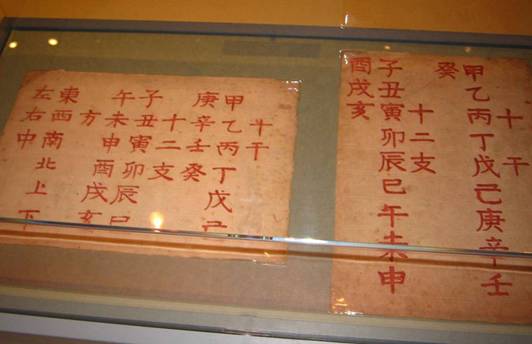 十干
甲乙丙丁戊己庚辛壬
癸
十二支
子丑寅卯辰巳午未申
酉戌亥
十干
甲乙丙丁戊己
庚辛壬癸
十二支
子丑寅卯辰巳
午未申酉戌亥
方
東西南北上下
左右中